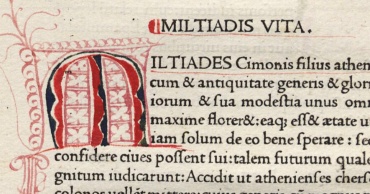 MILTIADIS VITA.
MILTIADES Cimonis filius athen
cum & antiquitate generis & glori
iorum & sua modestia unus om
maxime floret&: eaq; ess& ætate u
iam solum de eo bene sperare : sed
confidere ciues possent sui: talem futurum quale
gnitum iudicarunt: Accidit ut athenienses cherso
colonos uellēt mittere: cuius